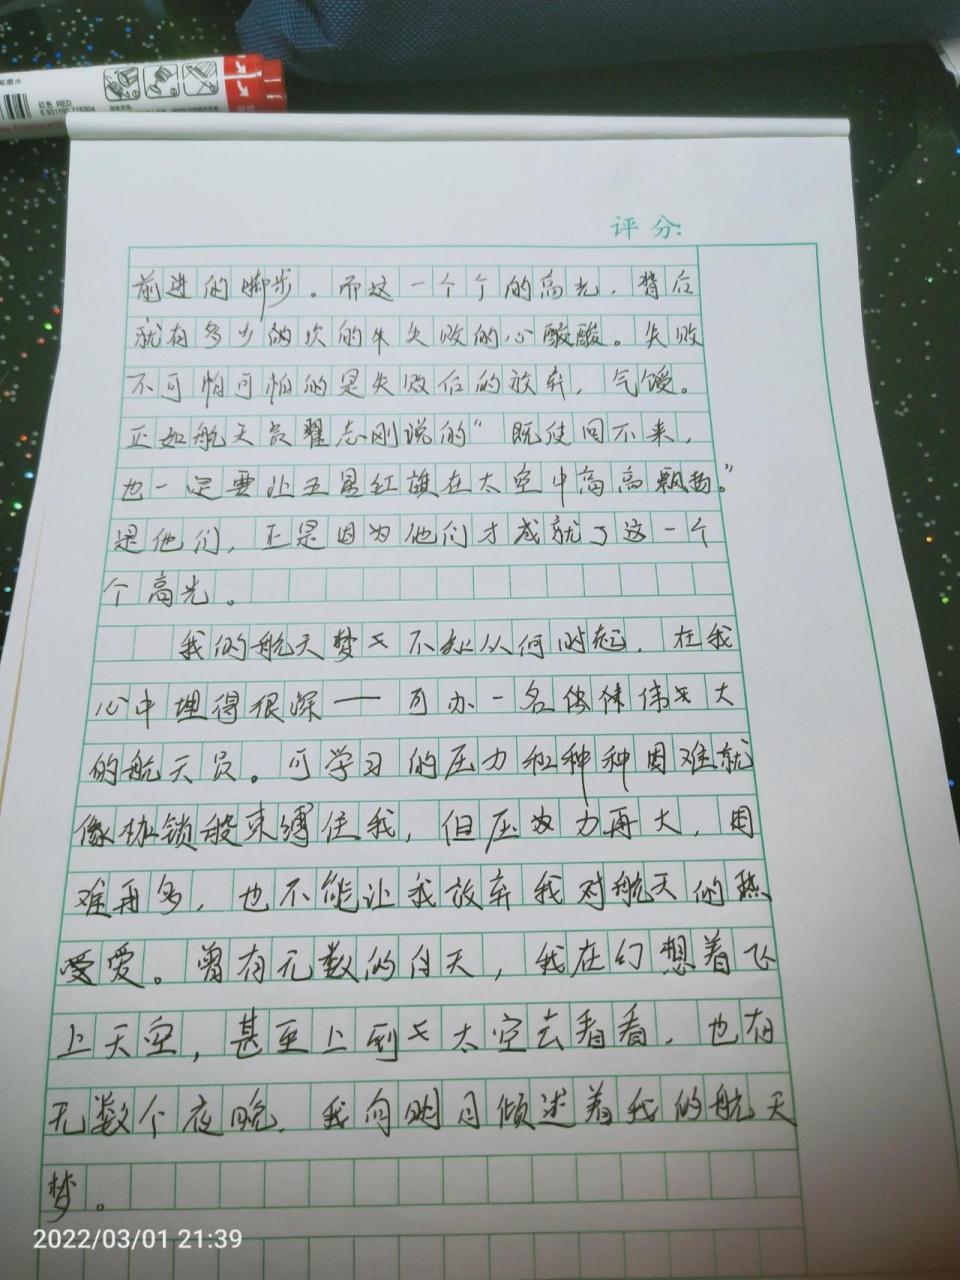 红色 RED
评分:
前进的脚步。而这一个个的高光,背后
就有多少的次的失败的心酸酸。失败
不可怕可怕的是失败后的放弃,气馁。
正如航天员翟志刚说的“既使回不来,
也一定要让五星红旗在太空中高高飘扬。”
是他们,正是因为他们才成就了这一个
个高光。
我的航天梦不知从何时起,在我
心中埋得很深——可办一名伟大
的航天员。可学习的压力和种种困难就
像枷锁般束缚住我,但压力再大,困
难再多,也不能让我放弃我对航天的热
爱。曾有无数的白天,我在幻想着飞
上天空,甚至上到太空去看看,也有
无数个夜晚,我向明月倾述着我的航天
梦。
2022/03/01 21:39